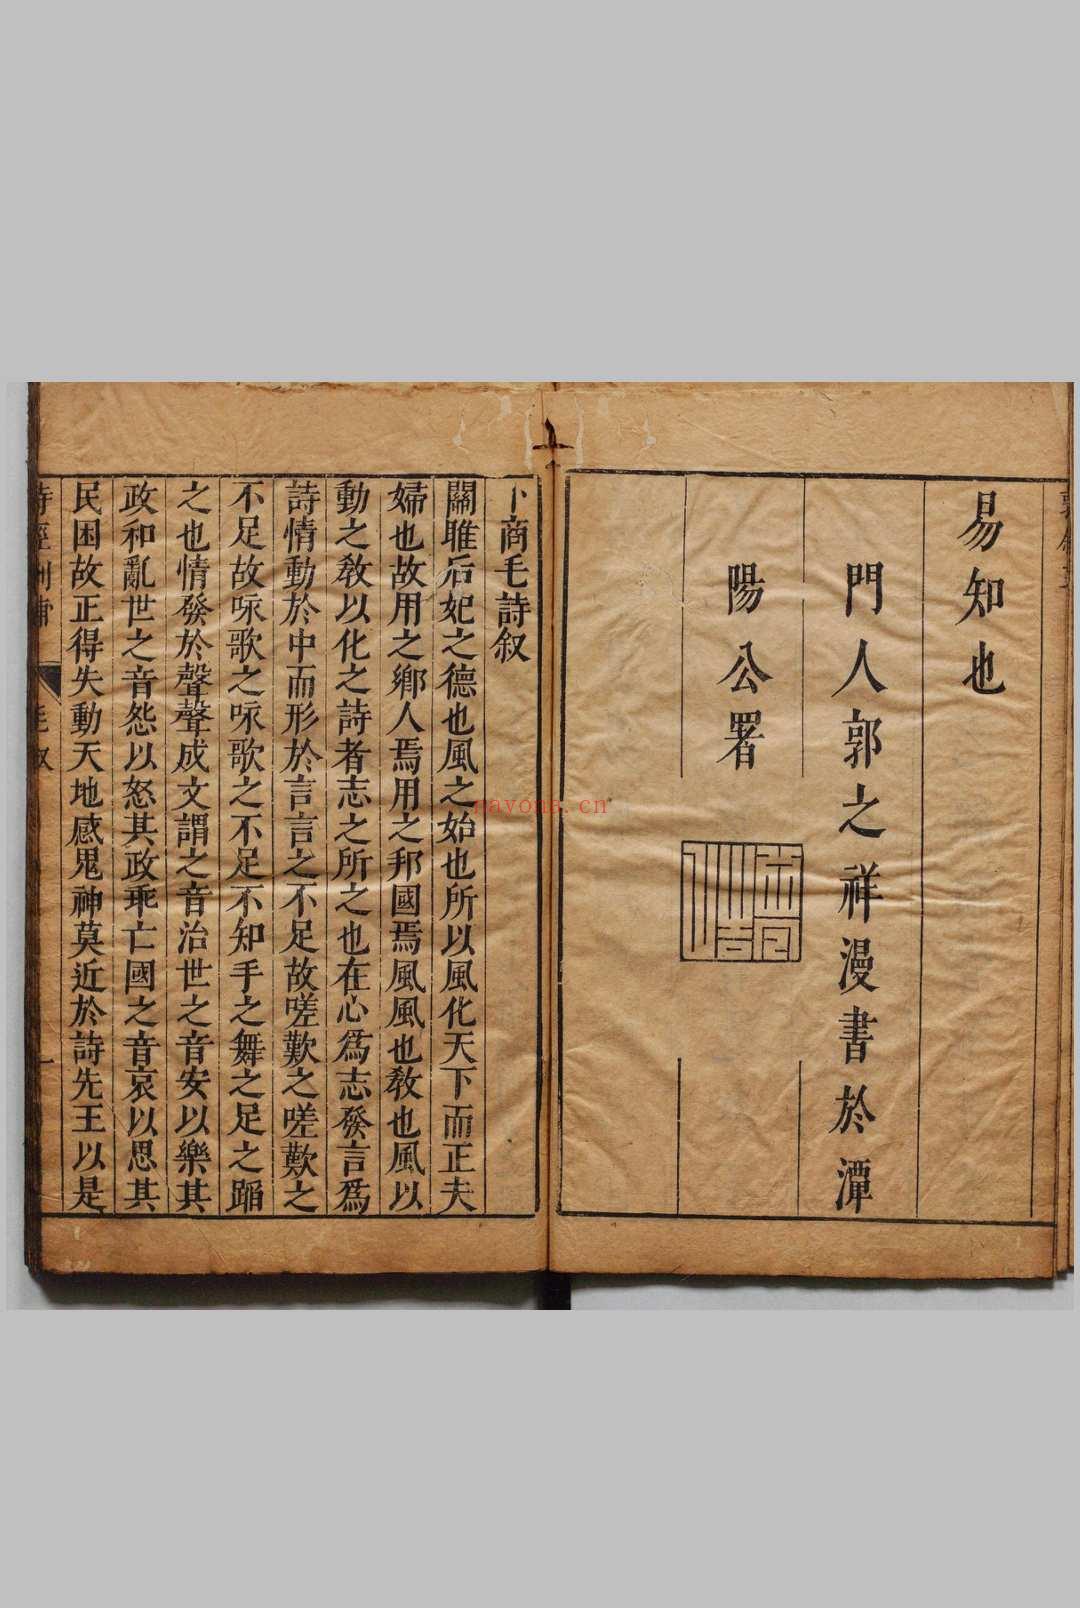 易知也
門人郭之祥漫書於潭
陽公署
卜商毛詩叙
關雎后妃之德也風之始也所以風化天下而正夫
婦也故用之鄉人焉用之邦國焉風風也教也風以
動之教以化之詩者志之所之也在心爲志發言爲
詩情動於中而形於言言之不足故嗟歎之嗟歎之
不足故咏歌之咏歌之不足不知手之舞之足之蹈
之也情發於聲聲成文謂之音治世之音安以樂其
政和亂世之音怨以怒其政乖亡國之音哀以思其
民困故正得失動天地感鬼神莫近於詩先王以是
nayona.cn